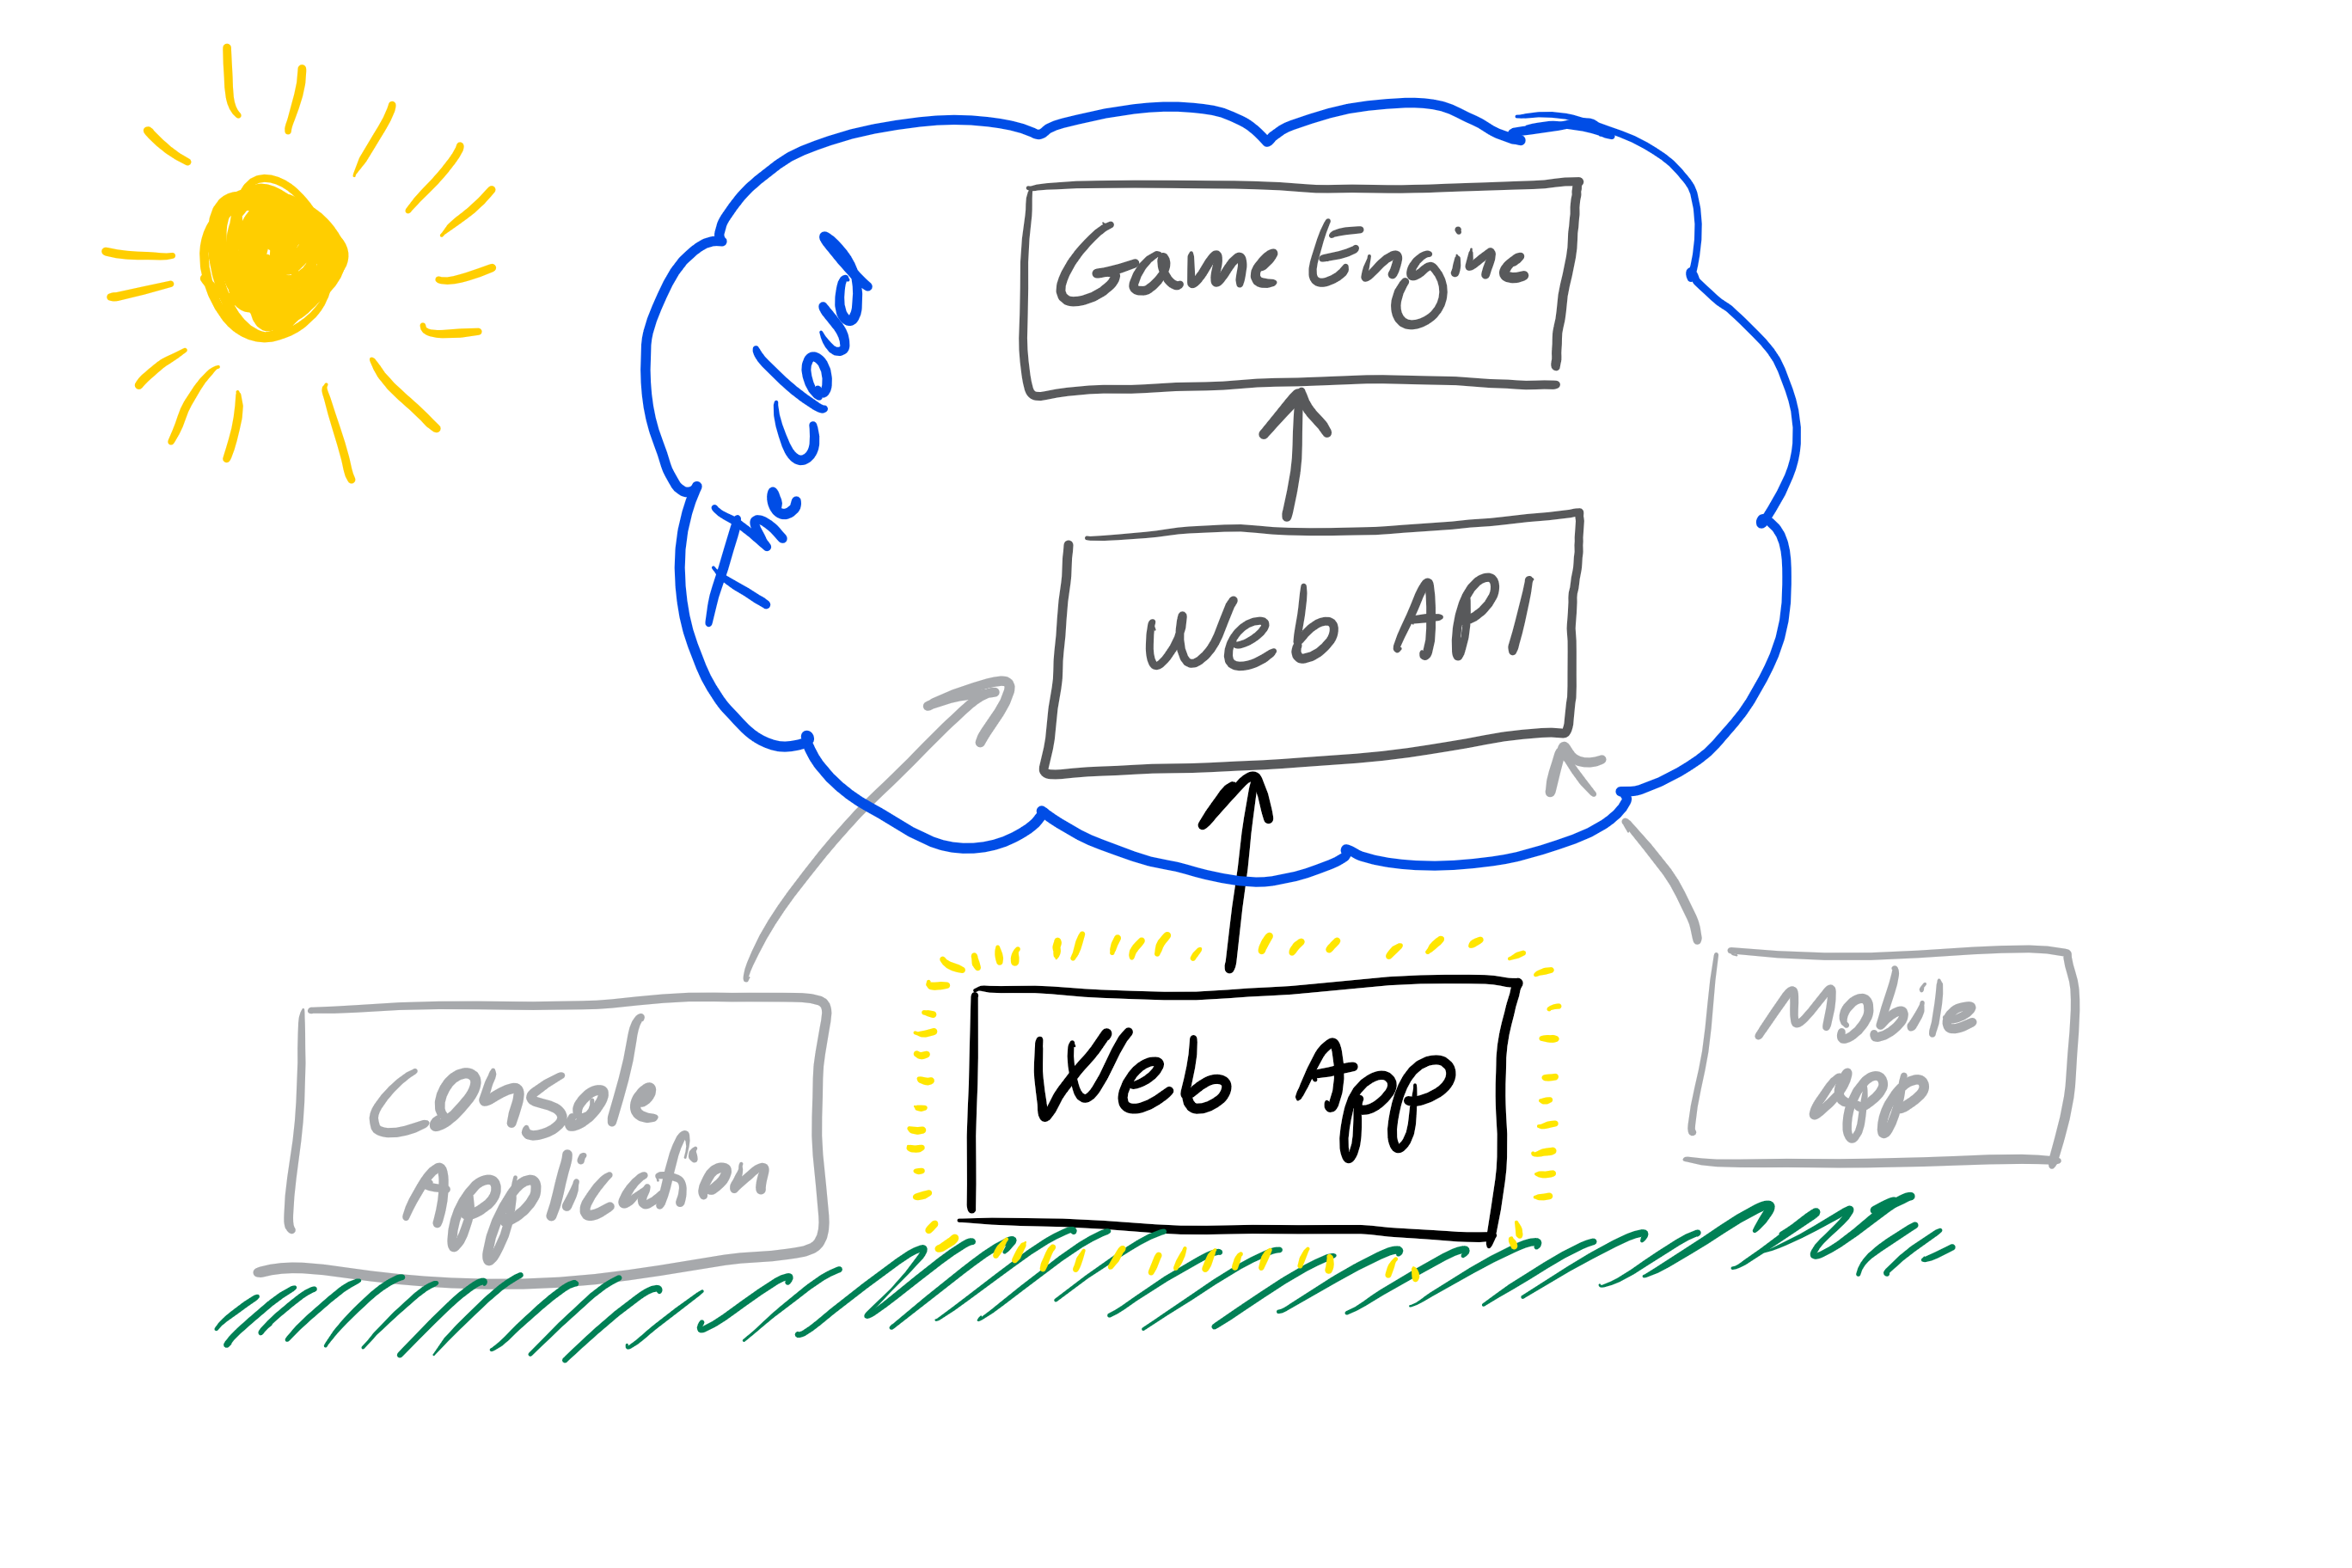 The Cloud
Game Engine
Web API
Console
Application
Web App
Mobile
App